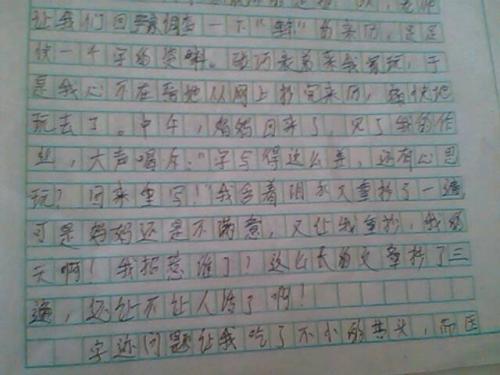 让我们回家调查一下"鲜"的来历，足足
快一千字的资料。张巧来着来我家玩，于
是我心不在焉地从网上抄完来历，轻快地
玩去了。中午，妈妈回来了，见了我的作
业，大声喝斥："字写得这么差，还有心思
玩？回来重写！"我含着泪水又重抄了一遍，
可是妈妈还是不满意，又让我重抄，我的
天啊！我招惹谁了？这么长的文章抄了三
遍，还让不让人活了啊！
字迹问题让我吃了不小的苦头，而且